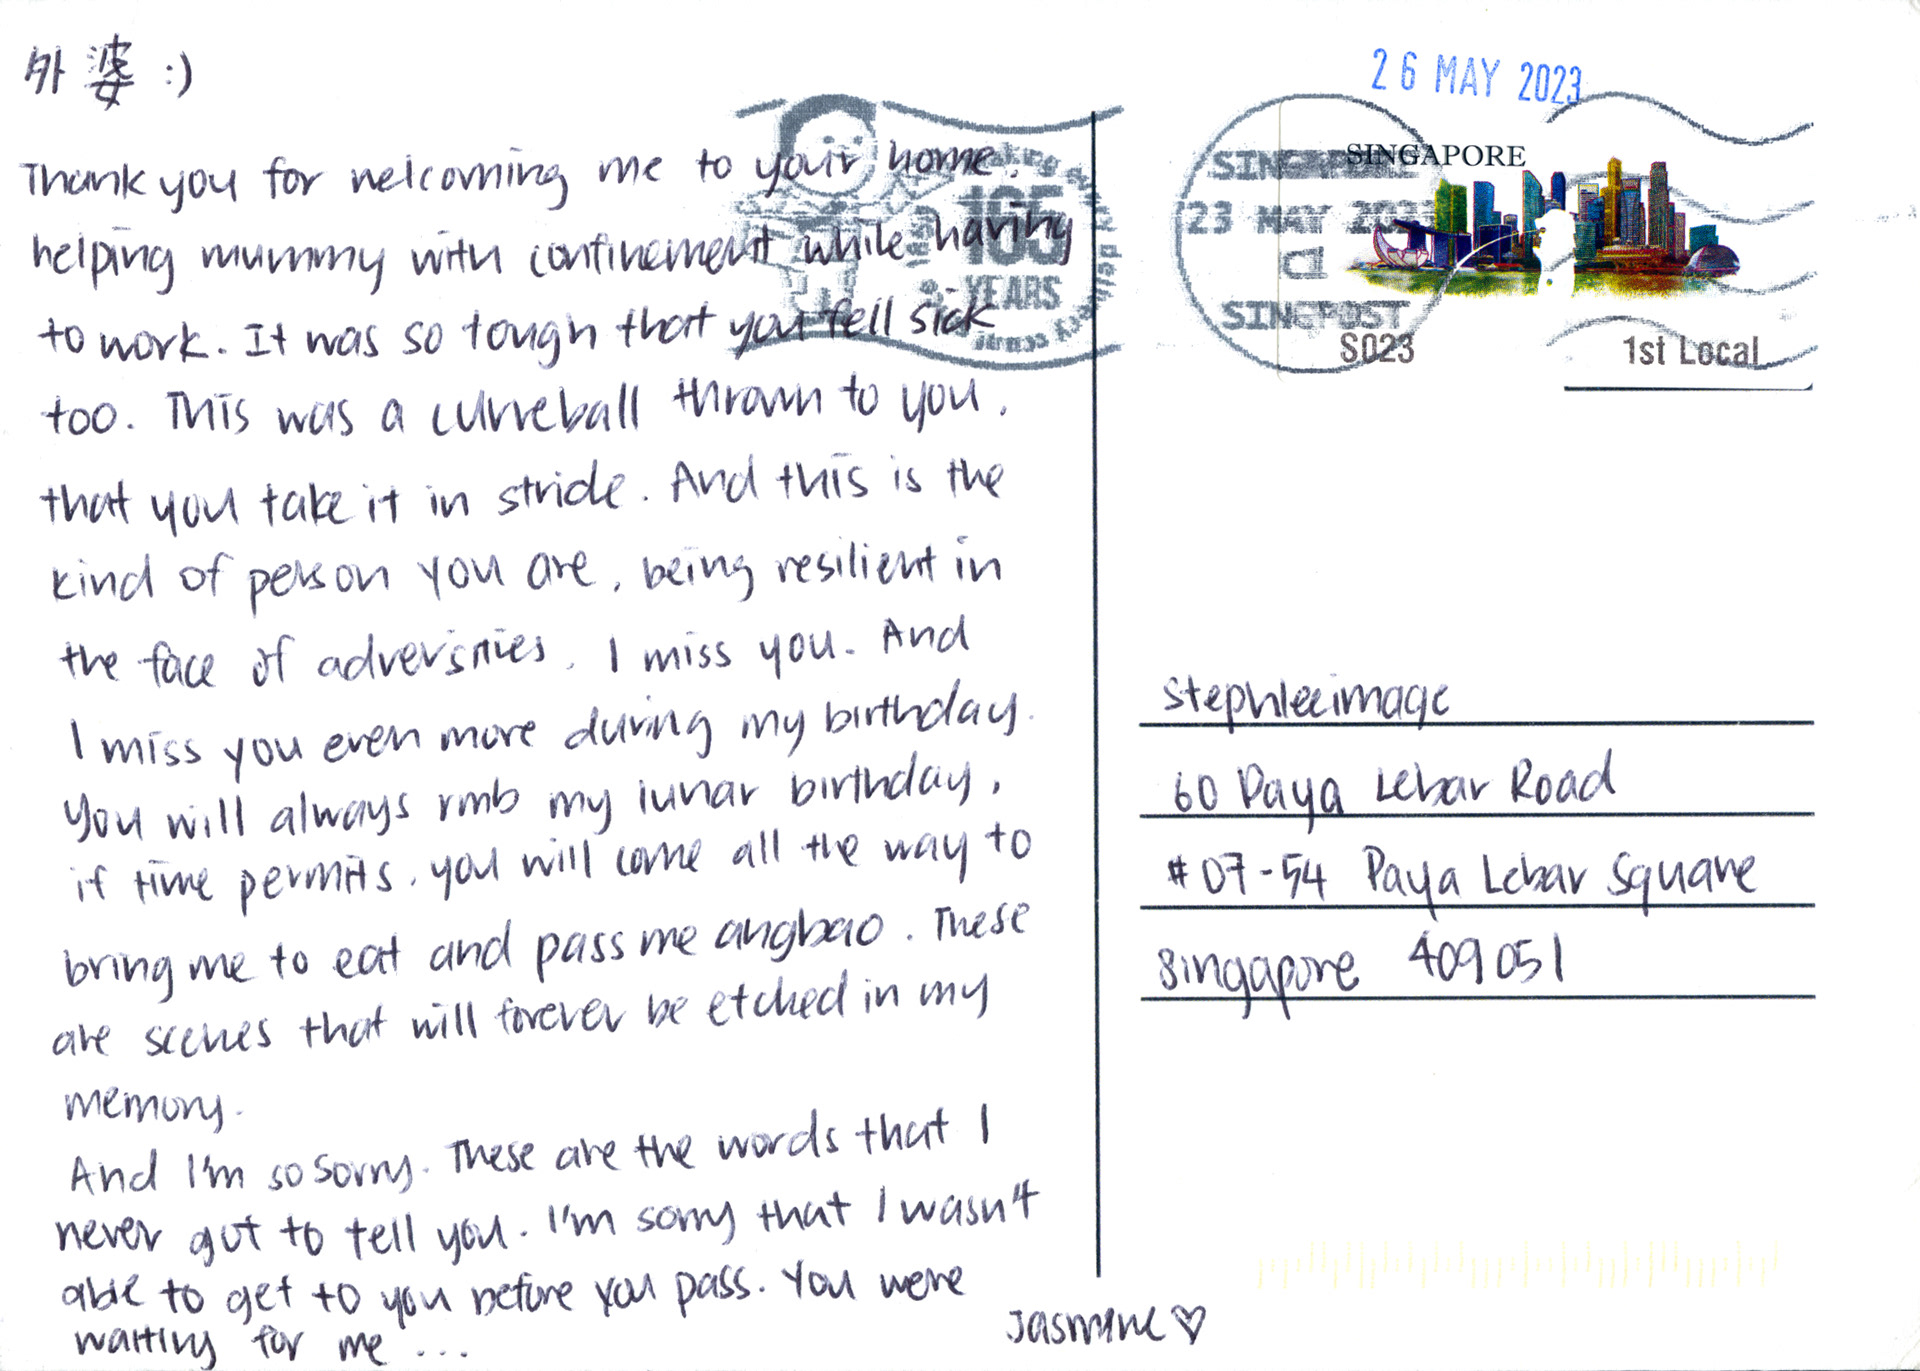 外婆 :)
Thank you for welcoming me to your home,
helping mummy with confinement while having
to work. It was so tough that you fell sick
too. This was a curveball thrown to you,
that you take it in stride. And this is the
kind of person you are, being resilient in
the face of adversities. I miss you. And
I miss you even more during my birthday.
You will always rmb my lunar birthday,
if time permits, you will come all the way to
bring me to eat and pass me angbao. These
are scenes that will forever be etched in my
memory.
And I'm so sorry. These are the words that I
never got to tell you. I'm sorry that I wasn't
able to get to you before you pass. You were
waiting for me ...
Jasmine ♡
165
YEARS
26 MAY 2023
SINGAPORE
23 MAY 2023
C1
SINGPOST
SINGAPORE
S023
1st Local
stephleeimage
60 Paya Lebar Road
#07-54 Paya Lebar Square
Singapore 409051